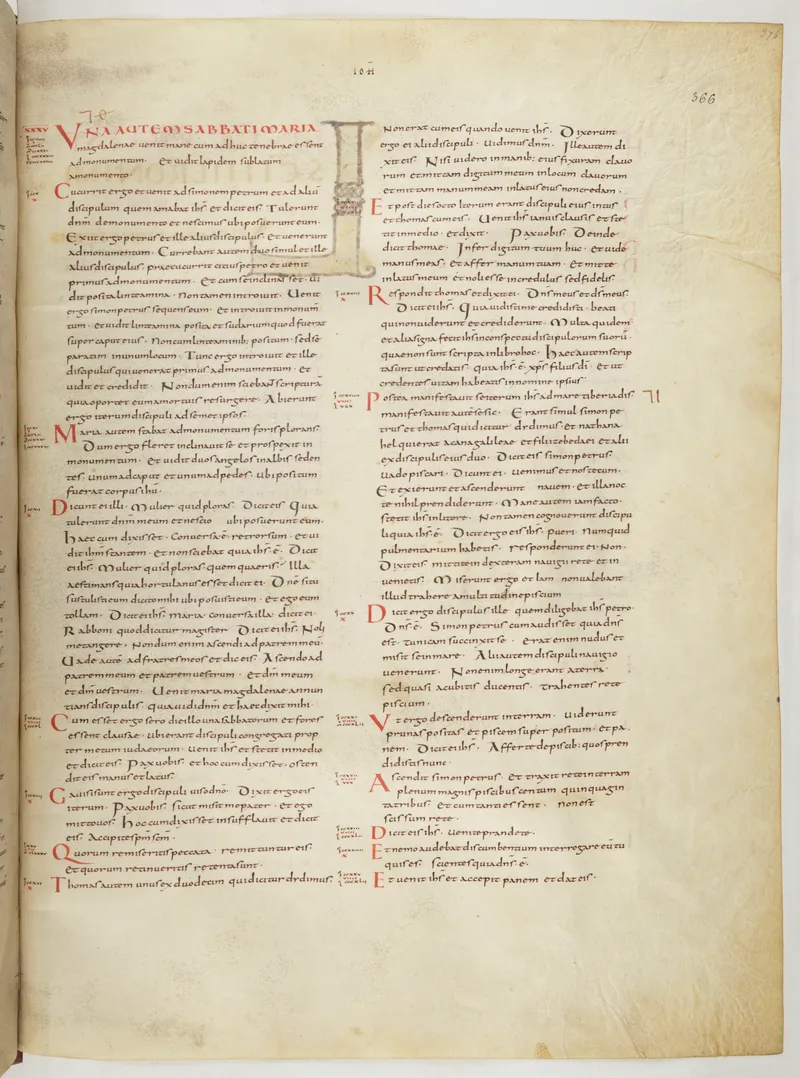 IOH
366
XXXV
UNA AUTEM SABBATI MARIA
magdalenae uenit mane cum adhuc tenebrae essent
ad monumentum. et uidit lapidem sublatum
a monumento.
Cucurrit ergo et uenit ad simonem petrum et ad aliū
discipulum quem amabat ihs̄ et dicit eis. Tulerunt
dnm̄ de monumento et nescimus ubi posuerunt eum.
Exiit ergo petrus et ille alius discipulus. et uenerunt
ad monumentum. Currebant autem duo simul et ille
alius discipulus praecucurrit citius petro et uenit
primus ad monumentum. Et cum se inclinasset. ui
dit posita linteamina. non tamen introiuit. Uenit
ergo simon petrus sequens eum. et introiuit in monum̄
tum. et uidit linteamina posita et sudarium quod fuerat
super caput eius. Non cum linteaminib; positum. sed se
paratim inuolutum in unum locum. Tunc ergo introiuit et ille
discipulus qui uenerat primus ad monumentum. et
uidit et credidit. Nondum enim sciebant scriptura
quia oportet eum a mortuis resurgere. Abierunt
ergo iterum discipuli ad semet ipsos.
Maria autem stabat ad monumentum foris plorans.
Dum ergo fleret inclinauit se et prospexit in
monumentum. et uidit duos angelos in albis seden
tes. unum ad caput et unum ad pedes. ubi positum
fuerat corpus ihu.
Dicunt ei illi. Mulier quid ploras. Dicit eis. Quia
tulerunt dnm̄ meum et nescio ubi posuerunt eum.
Haec cum dixisset. Conuersa ē retrorsum. et ui
dit ihm̄ stantem. et non sciebat quia ihs̄ ē. Dicit
ei ihs̄. Mulier quid ploras quem quaeris. Illa
aestimans quia hortulanus esset dicit ei. Dn̄e si tu
sustulisti eum dicito mihi ubi posuisti eum. et ego eum
tollam. Dicit ei ihs̄. maria. conuersa illa. dicit ei.
Rabboni quod dicitur magister. Dicit ei ihs̄. Noli
me tangere. Nondum enim ascendi ad patrem meū.
Uade autē ad fratres meos et dic eis. Ascendo ad
patrem meum et patrem uestrum. et dm̄ meum
et dm̄ uestrum. Uenit maria magdalenae annun
tians discipulis. quia uidi dnm̄ et haec dixit mihi.
Cum esset ergo sero die illo una sabbatorum et fores
essent clausae. ubi erant discipuli congregati prop
ter metum iudaeorum. uenit ihs̄ et stetit in medio
et dicit eis. Pax uobis. et hoc cum dixisset. osten
dit eis manus et latus.
Gauisi sunt ergo discipuli uiso dnō. Dixit ergo eis
iterum. Pax uobis. sicut misit me pater. et ego
mitto uos. Hoc cum dixisset insufflauit et dicit
eis. Accipite sp̄m sc̄m.
Quorum remiseritis peccata. remittuntur eis.
et quorum retinueritis retenta sunt.
Thomas autem unus ex duodecim qui dicitur didimus.
Non erat cum eis quando uenit ihs̄. Dixerunt
ergo ei alii discipuli. Uidimus dnm̄. Ille autem di
xit eis. Nisi uidero in manib; eius fixuram clauo
rum et mittam digitum meum in locum clauorum
et mittam manum meam in latus eius non credam.
Et post dies octo iterum erant discipuli eius intus
et thomas cum eis. Uenit ihs̄ ianuis clausis et ste
tit in medio. et dixit. Pax uobis. Deinde
dicit thomae. Infer digitum tuum huc. et uide
manus meas. et affer manum tuam. et mitte
in latus meum et noli esse incredulus sed fidelis.
Respondit thomas et dixit ei. Dns̄ meus et ds̄ meus.
Dicit ei ihs̄. Quia uidisti me credidisti. beati
qui non uiderunt et crediderunt. Multa quidem
et alia signa fecit ihs̄ in conspectu discipulorum suorū.
quae non sunt scripta in libro hoc. Haec autem scrip
ta sunt ut credatis. quia ihs̄ ē. xps̄ filius dī. et ut
credentes uitam habeatis in nomine ipsius.
Postea manifestauit se iterum ihs̄ ad mare tiberiadis.
manifestauit autē se sic. Erant simul simon pe
trus et thomas qui dicitur didimus. et natha
hel qui erat a cana galileae et filii zebedaei et alii
ex discipulis eius duo. Dicit eis simon petrus.
Uado piscari. Dicunt ei. uenimus et nos tecum.
Et exierunt et ascenderunt nauem. et illa noc
te nihil prendiderunt. Mane autem iam facto.
stetit ihs̄ in litore. Non tamen cognouerunt discipu
li quia ihs̄ ē. Dicit ergo eis ihs̄. pueri. Numquid
pulmentarium habetis. responderunt ei. Non.
Dixit eis mittite in dexteram nauigii rete. et in
uenietis. Miserunt ergo et iam non ualebant
illud trahere a multitudine piscium
Dicit ergo discipulus ille quem diligebat ihs̄ petro.
Dns̄ ē. Simon petrus cum audisset quia dns̄
est. tunicam succinxit se. erat enim nudus et
misit se in mare. Alii autem discipuli nauigio
uenerunt. Non enim longe erant a terra.
sed quasi a cubitis ducentis. trahentes rete
piscium.
Ut ergo descenderunt in terram. Uiderunt
prunas positas et piscem super positum. et pa
nem. Dicit ei ihs̄. Afferte de piscib; quos pren
didistis nunc.
Ascendit simon petrus. et traxit rete in terram
plenum magnis piscibus centum quinquagin
ta tribus. Et cum tanti essent. non est
scissum rete.
Dicit eis ihs̄. Uenite prandete.
Et nemo audebat discumbentium interrogare eū tu
quis es. scientes quia dns̄ ē.
Et uenit ihs̄ et accepit panem et dat eis.